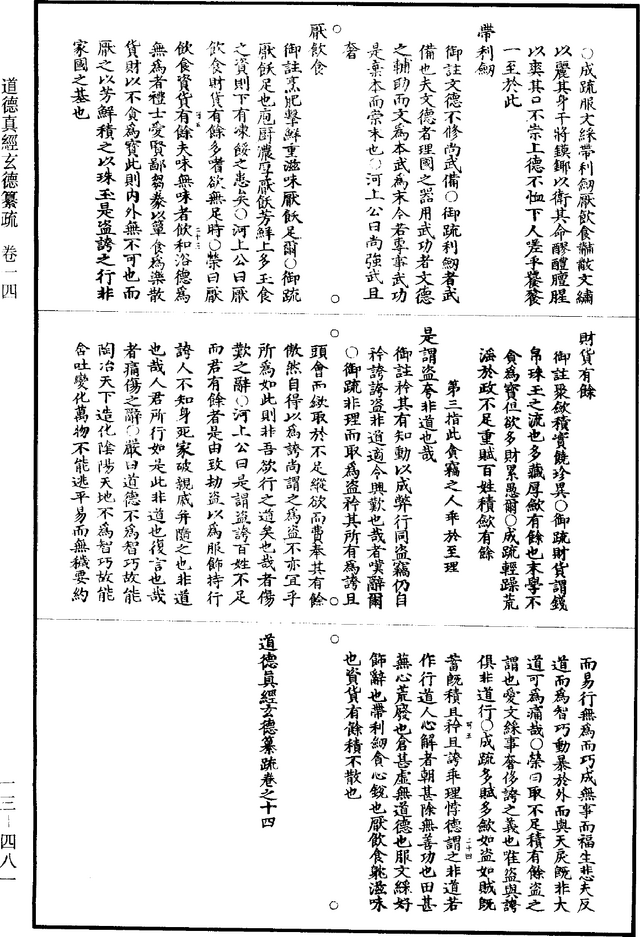 ○成疏服文綵帶利劒厭飲食黼黻文繡
以麗其身干將鏌鎁以衛其命醪醴膻腥
以爽其口不崇上德不恤下人嗟乎饕餮
一至於此
帶利劒
御註文德不修尚武備○御疏利劒者武
備也夫文德者理國之器用武功者文德
之輔助而文為本武為末今若專事武功
是棄本而崇末也○河上公曰尚強武且
奢
厭飲食
御註烹肥擊鮮重滋味厭飫足爾○御疏
厭飫足也庖厨濃厚厭飫芳鮮上多玉食
之資則下有凍餒之患矣○河上公曰厭
飲食財貨有餘多嗜欲無足時○榮曰厭
飲食資貨有餘夫味無味者飲和浴德為
無為者禮士愛賢鄙芻豢以簞食為樂散
貨財以不貪為寶此則内外無不可也而
厭之以芳鮮積之以珠玉是盜誇之行非
家國之基也
財貨有餘
御註聚歛積實饒珍異○御疏財貨謂錢
帛珠玉之流也多藏厚歛有餘也末學不
貪為寶但欲多財累愚爾○成疏輕躁荒
滛於政不足重賦百姓積歛有餘
第三指此貪竊之人乖於至理
是謂盜夸非道也哉
御註矜其有知動以成弊行同盜竊仍自
矜誇誇盜非道適令興歎也哉者嘆辭爾
○御疏非理而取為盜矜其所有為誇且
頭會而歛取於不足縱欲而費奉其有餘
傲然自得以為誇尚謂之為盜不亦宜乎
所為如此則非吾欲行之道矣也哉者傷
歎之辭○河上公曰是謂盜誇百姓不足
而君有餘者是由致劫盜以為服飾持行
誇人不知身死家破親戚并隨之也非道
也哉人君所行如是此非道也復言也哉
者痛傷之辭○嚴曰道德不為智巧故能
陶冶天下造化陰陽天地不為智巧故能
含吐變化萬物不能逃平易而無穢要約
而易行無為而巧成無事而福生悲夫反
道而為智巧動暴於外而與天戾既非大
道可為痛哉○榮曰取不足積有餘盜之
謂也愛文綵事奢侈誇之義也唯盜與誇
俱非道行○成疏多賦多歛如盜如賊既
蓄既積且矜且誇乖理悖德謂之非道若
作行道人心解者朝甚除無善功也田甚
蕪心荒廢也倉甚虛無道德也服文綵好
飾辭也帶利劒貪心銳也厭飲食躭滋味
也資貨有餘積不散也
道德眞經玄德纂疏卷之十四
道德真經玄德纂疏 卷一四
一三-四八一